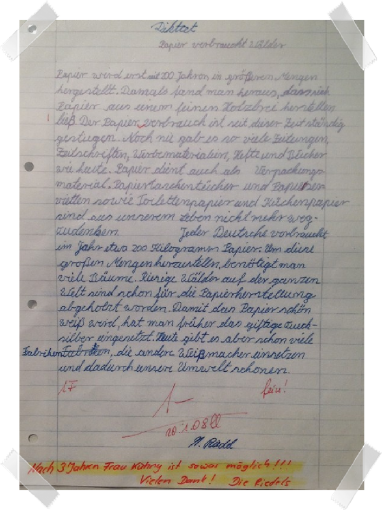 Diktat
Papier verbraucht Wälder
Papier wird erst seit 200 Jahren in größeren Mengen
hergestellt. Damals fand man heraus, dass sich
Papier aus einem feinen Holzbrei herstellen
ließ. Der Papierverbrauch ist seit dieser Zeit ständig
gestiegen. Noch nie gab es so viele Zeitungen,
Zeitschriften, Werbematerialien, Hefte und Bücher
wie heute. Papier dient auch als Verpackungs-
material. Papiertaschentücher und Papierser-
vietten sowie Toilettenpapier und Küchenpapier
sind aus unserem Leben nicht mehr weg-
zudenken. Jeder Deutsche verbraucht
im Jahr etwa 200 Kilogramm Papier. Um diese
großen Mengen herzustellen, benötigt man
viele Bäume. Riesige Wälder auf der ganzen
Welt sind schon für die Papierherstellung
abgeholzt worden. Damit das Papier schön
weiß wird, hat man früher das giftige Queck-
silber eingesetzt. Heute gibt es aber schon viele
Fabriken, die andere Weißmacher einsetzen
und dadurch unsere Umwelt schonen.
1F fein!
1-
Nach 3 Jahren Frau Kühny ist sowas möglich!!!
Vielen Dank! Die Riedels